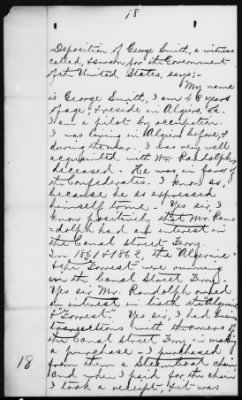 18
Deposition of George Smith, a witness
called, & sworn for the Government
of the United States, says;-
My name
is George Smith, I am 48 years
of age, & reside in Algiers, La.
I am a pilot by occupation.
I was living in Algiers before, &
during the war. I was very well
acquainted with Wm Randolph,
deceased. He was in favor of
the Confederates. I know so,
because he so expressed
himself to me. Yes sir, I
know positively that Mr. Ran
dolph had an interest in
the Canal Street Ferry.
In 1861 & 1862, the "Algerine"
& the "Forrest" were running
on the Canal Street Ferry.
Yes sir Mr. Randolph owned
an interest in both the Algerine
& "Forrest". Yes sir, I had
transactions with the owners of
the Canal Street Ferry in making
a purchase - I purchased
from them a Steamboat
and when I paid for the
I took a receipt, it was
18